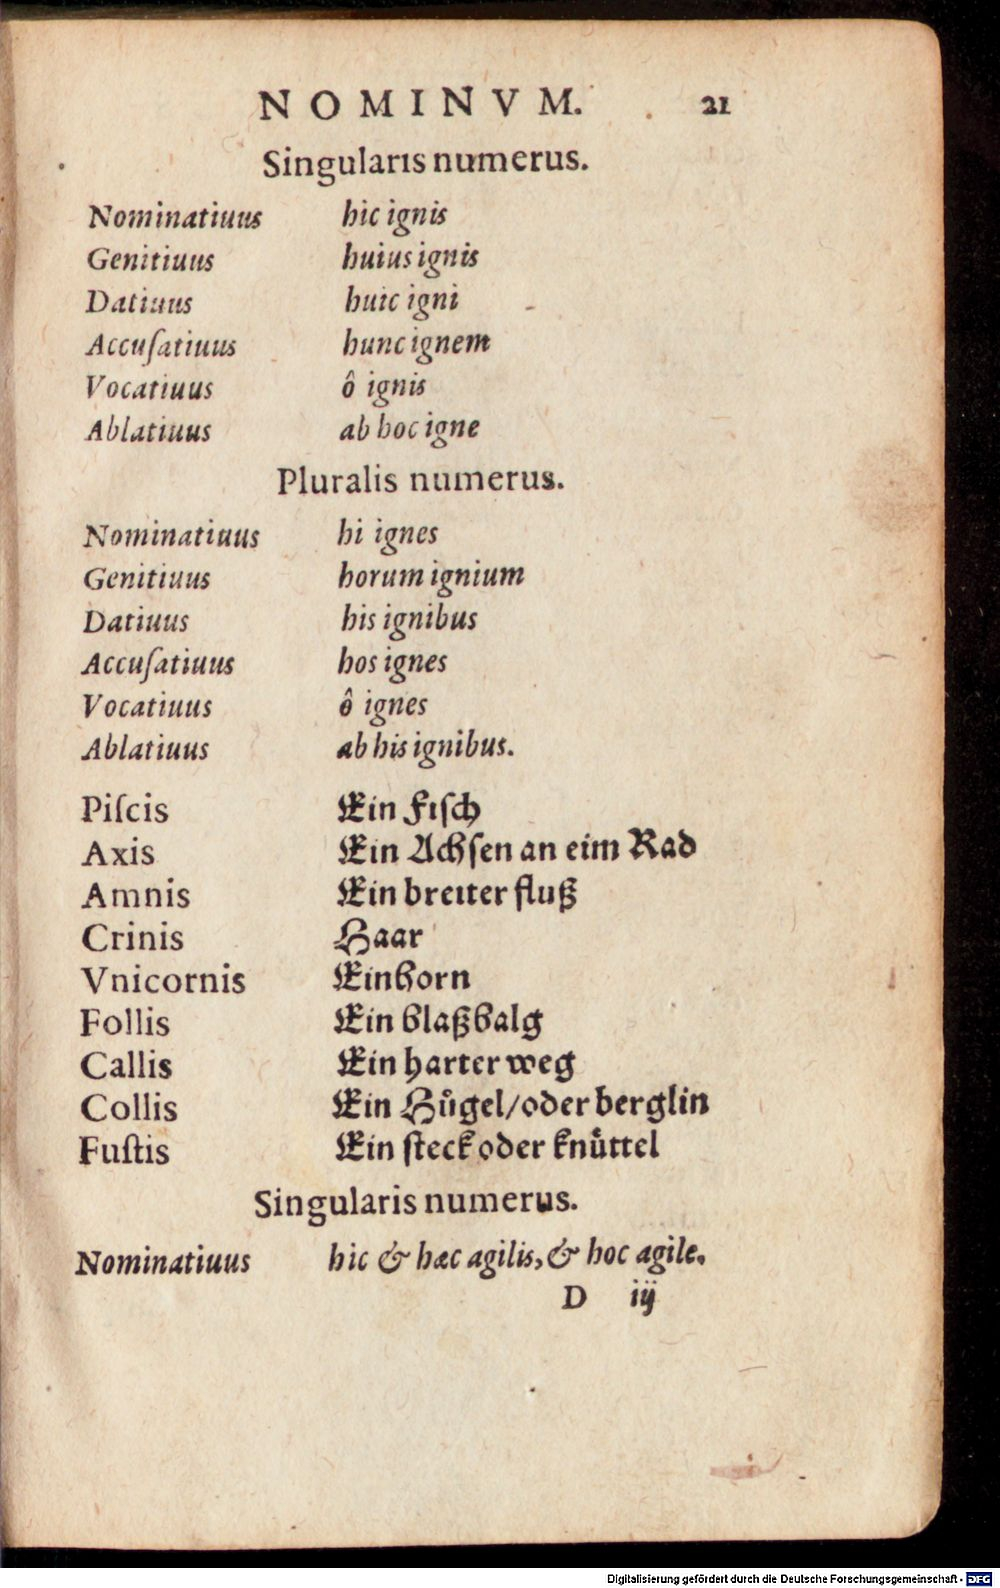 NOMINVM. 21
Singularis numerus.
Nominatiuus hic ignis
Genitiuus huius ignis
Datiuus huic igni
Accuſatiuus hunc ignem
Vocatiuus ô ignis
Ablatiuus ab hoc igne
Pluralis numerus.
Nominatiuus hi ignes
Genitiuus horum ignium
Datiuus his ignibus
Accuſatiuus hos ignes
Vocatiuus ô ignes
Ablatiuus ab his ignibus.
Piſcis Ein Fiſch
Axis Ein Achſen an eim Rad
Amnis Ein breiter fluß
Crinis Haar
Vnicornis Einhorn
Follis Ein blaßbalg
Callis Ein harter weg
Collis Ein Huͤgel/oder berglin
Fuſtis Ein ſteck oder knuͤttel
Singularis numerus.
Nominatiuus hic & hæc agilis, & hoc agile.
D iij
Digitalisierung gefördert durch die Deutsche Forschungsgemeinschaft - DFG